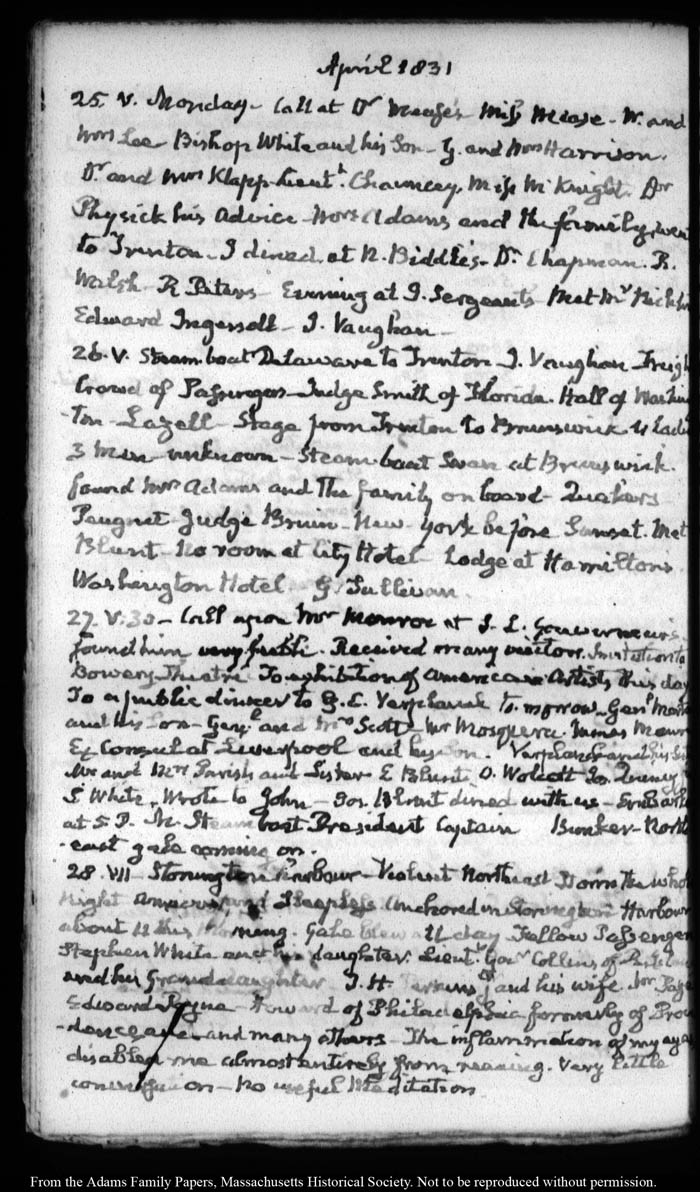 April 1831
25. V. Monday - Call at Dr Mease's Miss Mease - W. and
Mrs Lee Bishop White and his Son - G. and Mrs Harrison.
Dr and Mrs Klapp - Lieut.t Chauncey. Miss McKnight. Dr
Physick his advice - Mrs Adams and the family went
to Trenton - I dined at N. Biddle's - Dr Chapman. R.
Walsh - R Peters - Evening at J. Sergeant's Met Mr
Edward Ingersoll - J. Vaughan -
26. V. Steam boat Delaware to Trenton - J. Vaughan
Crowd of Passengers - Judge Smith of Florida. Hall of Washing
ton - Lazell - Stage from Trenton to Brunswick 4 Ladies
3 Men unknown - Steam-boat Swan at Brunswick.
found Mrs Adams and the family on board - Quakers
Peugnet - Judge Bruin - New-York before Sunset. Met
Blunt - No room at City Hotel - Lodge at Hamilton's
Washington Hotel G Sullivan.
27. V:30 - Call upon Mr Monroe at S. L. Gouverneur's
found him very feeble. Received many visitors. Invitation to
Bowery Theatre To exhibition of American Artists this day
To a public dinner to G. C. Verplanck to-morrow. Genl
and his Son - Genl and Mrs Scott - Mr Mosquera. James Maury
Ex Consul at Liverpool and his Son. Verplanck and his
Mr and Mrs Parish and Sister E Blunt, O. Wolcott Jo. Quincy
S White, Wrote to John - Jos. Blunt dined with us - Embark
at 5 P. M. Steam boat President Captain Bunker - North
east gale coming on.
28. VII - Stonington Harbour - Violent Northeast Storm the whole
night and Sleepless Anchored in Stonington Harbour
about 11 this Morning. Gale blew all day Fellow Passengers
Stephen White and his daughter. Lieutt Govr Collins of
and his Granddaughter T. H. Perkins Jr and his wife. Mr Page
Edward of Philadelphia formerly of Prov
-dence and many others - The inflammation of my eyes
disabled me almost entirely from reading. Very little
conversation - No useful Meditation
From the Adams Family Papers, Massachusetts Historical Society. Not to be reproduced without permission.